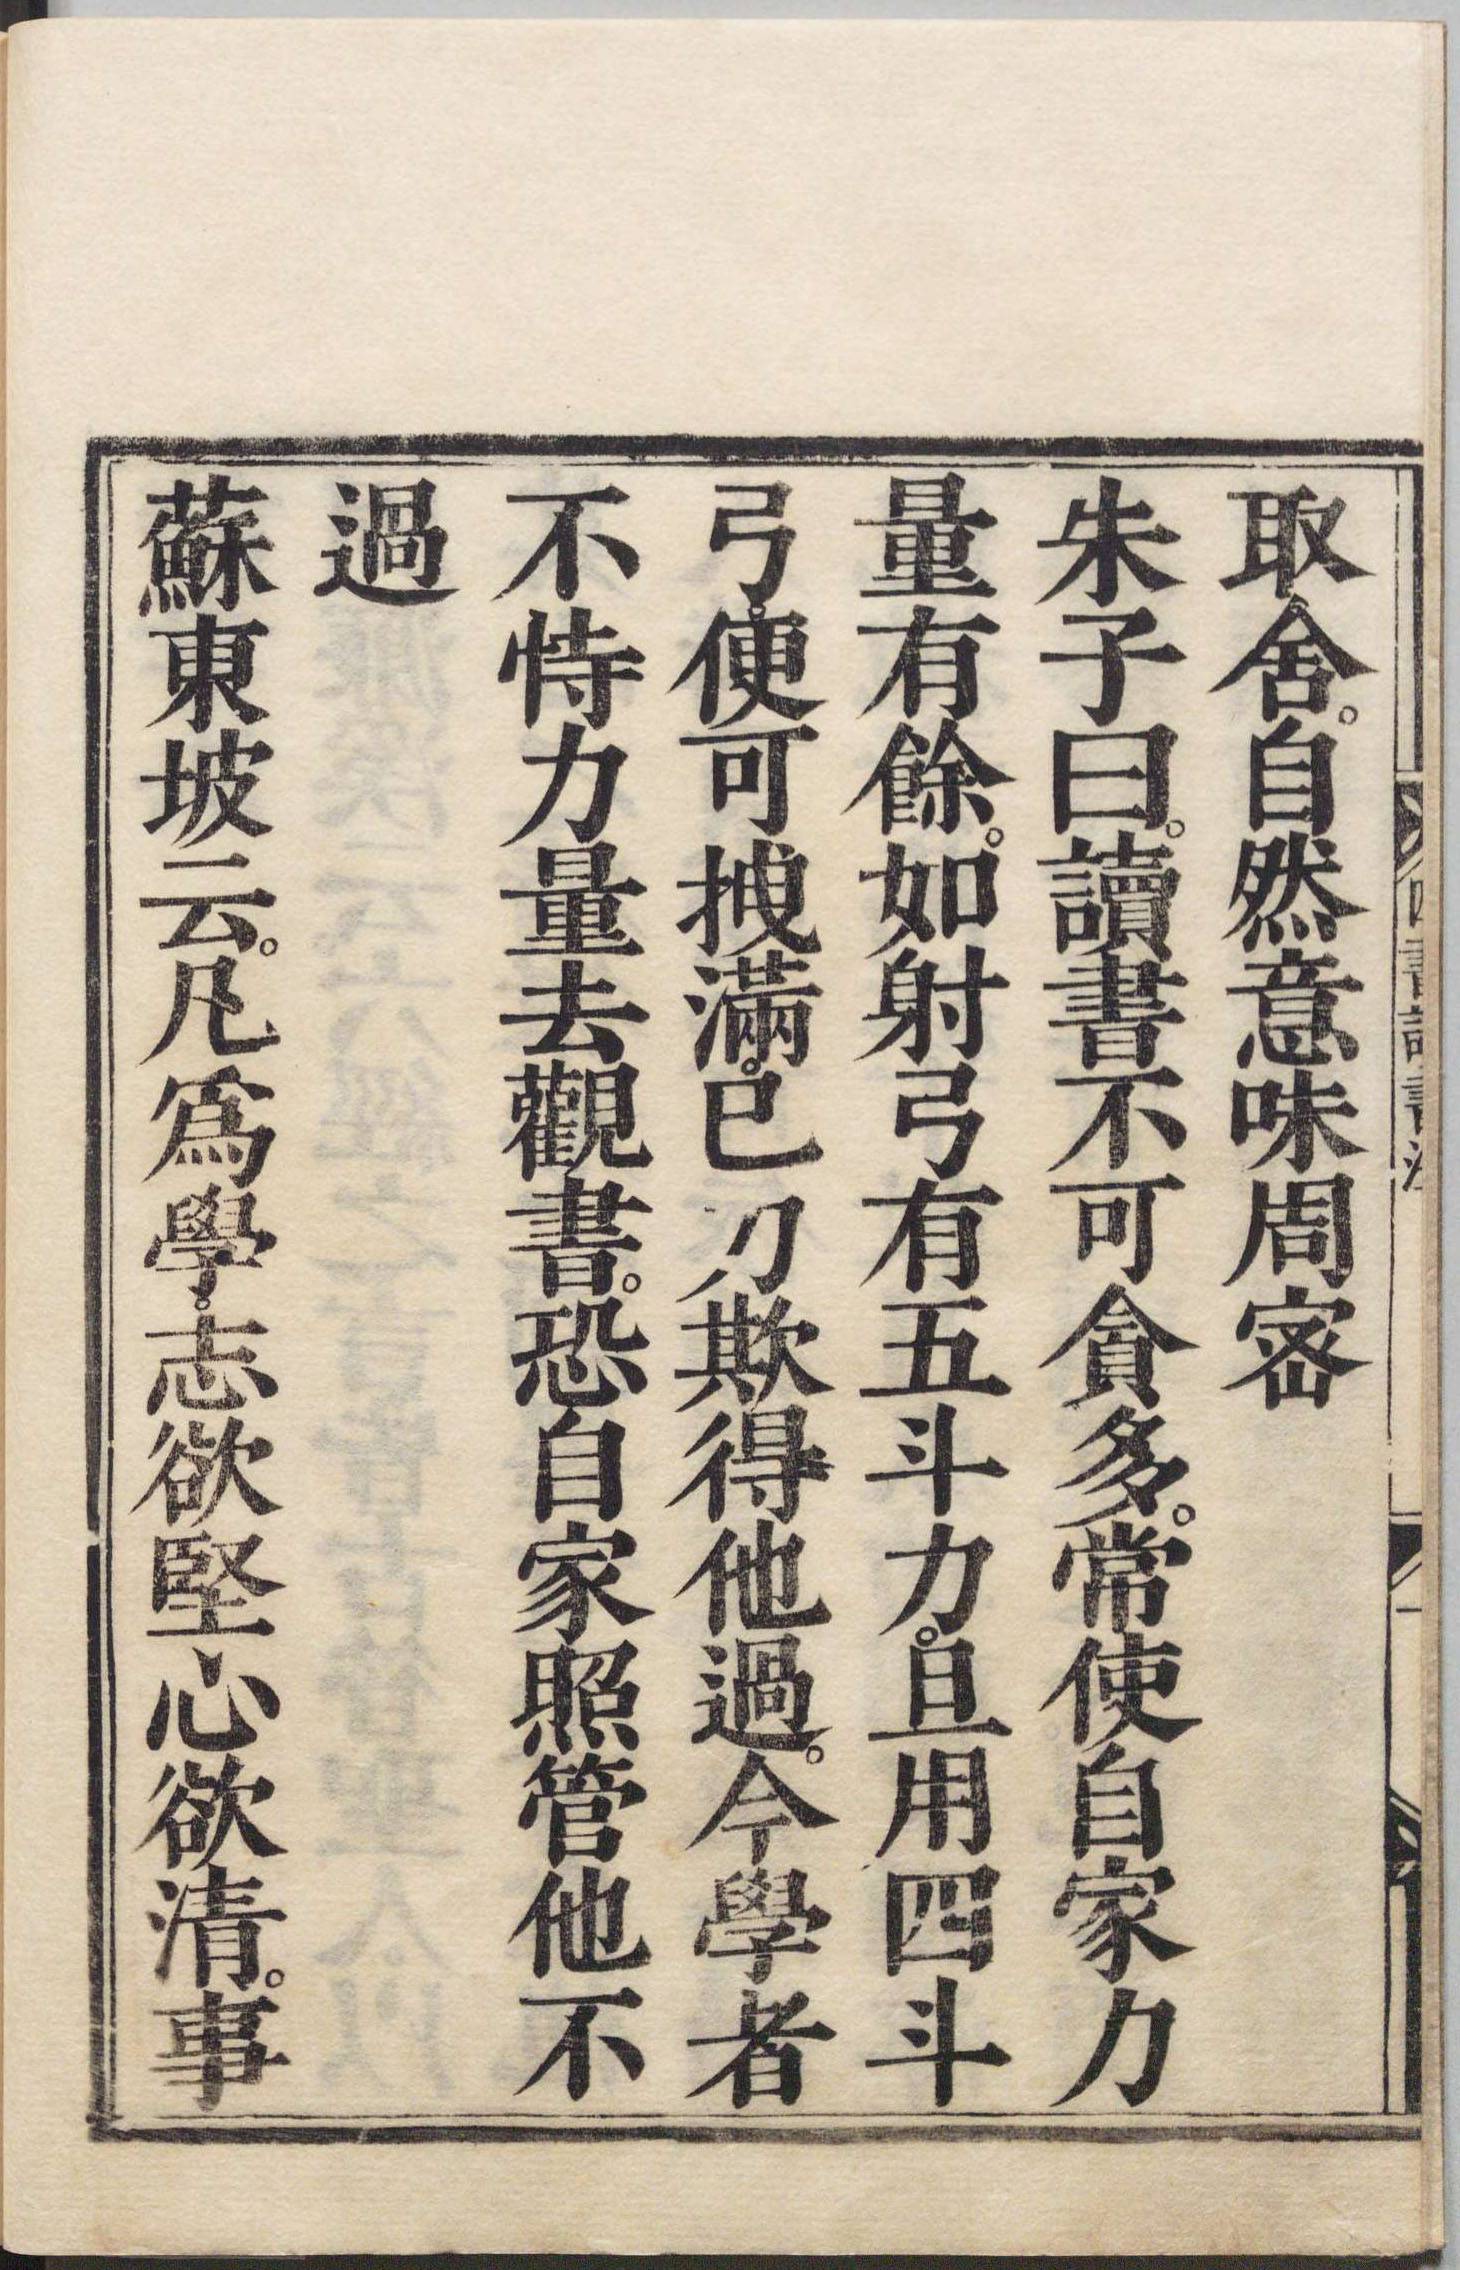 取舍。自然意味周宻
朱子曰。讀書不可貪多。常使自家力
量有餘。如射弓有五斗力。且用四斗
弓。便可拽滿。已力欺得他過。今學者
不恃力量去觀書。恐自家照管他不
過
蘇東坡云。凡爲學。志欲堅心欲清。事
四書讀書法